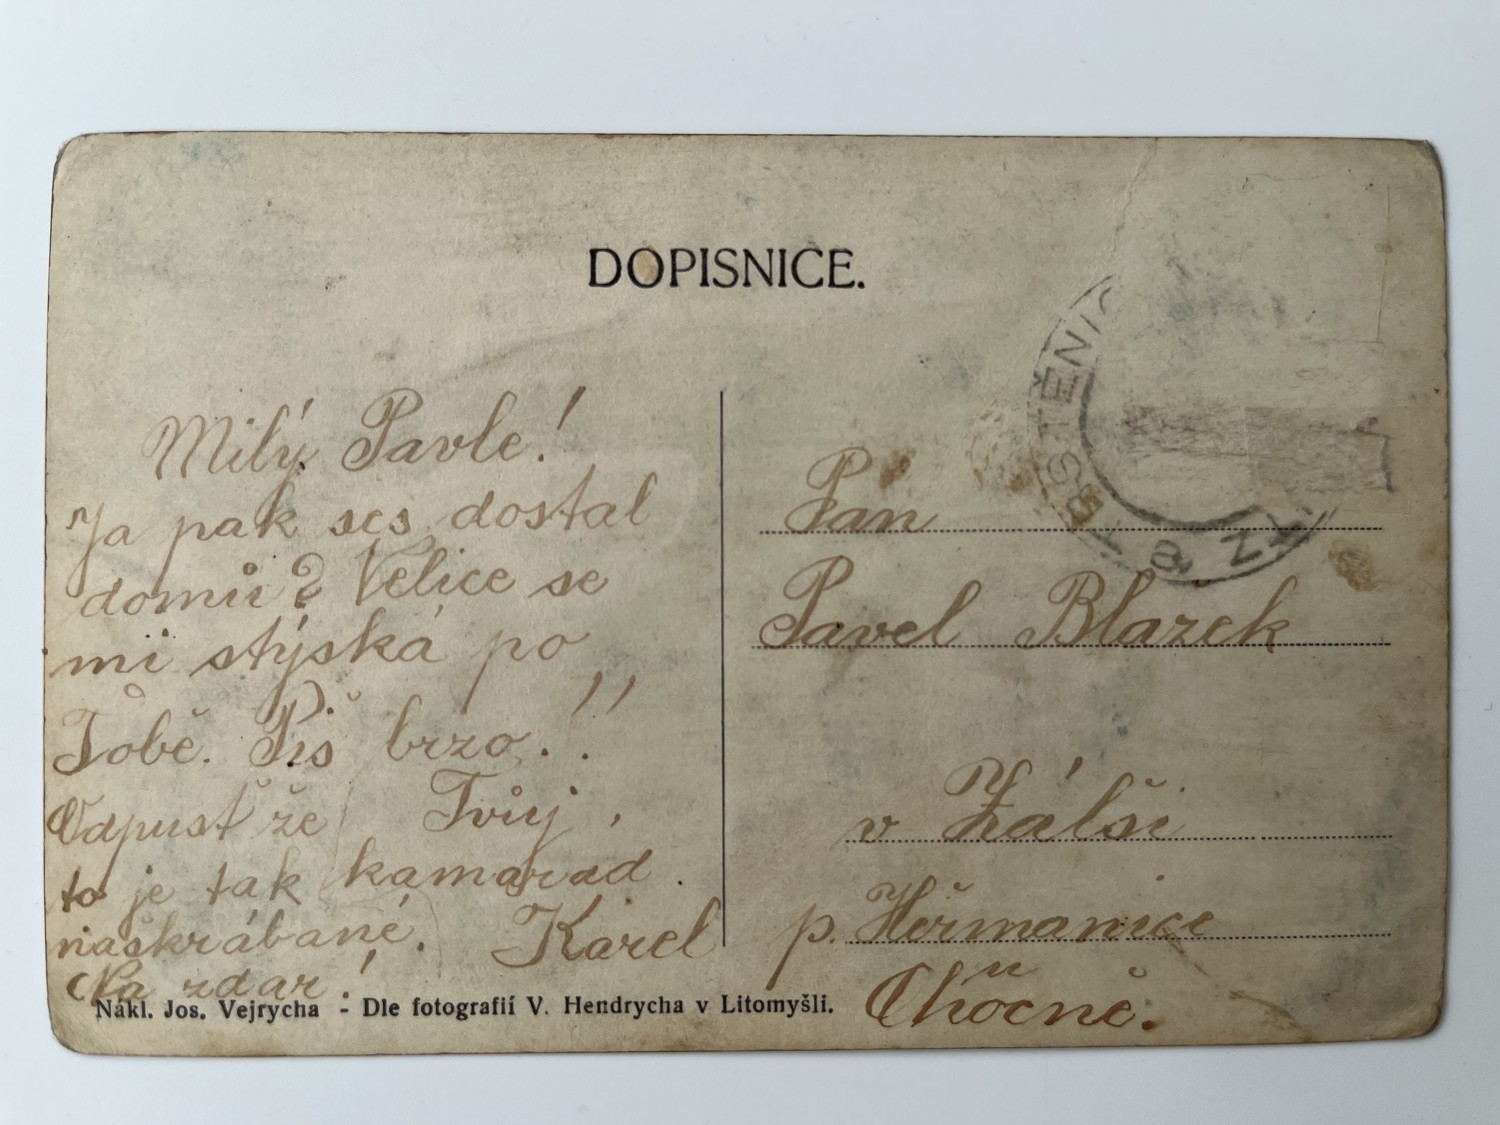 DOPISNICE.
Milý Pavle!
Ja pak ses dostal
domů? Velice se
mi stýská po
Tobě. Piš brzo.!!
Odpusť že
to je tak
naškrábané.
Na zdar!
Tvůj
kamarad.
Karel
Pán
Pavel Blazek
v Zálši
p. Heřmanice
u
Chocně.
Nákl. Jos. Vejrycha - Dle fotografií V. Hendrycha v Litomyšli.